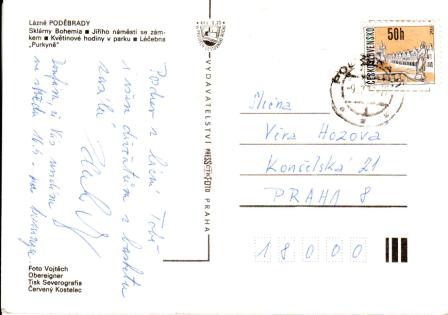 Lázně PODĚBRADY
Sklárny Bohemia ■ Jiřího náměstí se zám-
kem ■ Květinové hodiny v parku ■ Léčebna
„Purkyně“
Pozdrav z lázní Tobě
i všem děvčatům z basketu
zasílá
Doufám, že Vás uvidím
Foto Vojtěch
Obereigner
Tisk Severografia
Červený Kostelec
VYDAVATELSTVÍ PRESSFOTO PRAHA
50h
ČESKOSLOVENSKO
Slečna
Věra Hozova
Končelská 21
PRAHA 8
18000